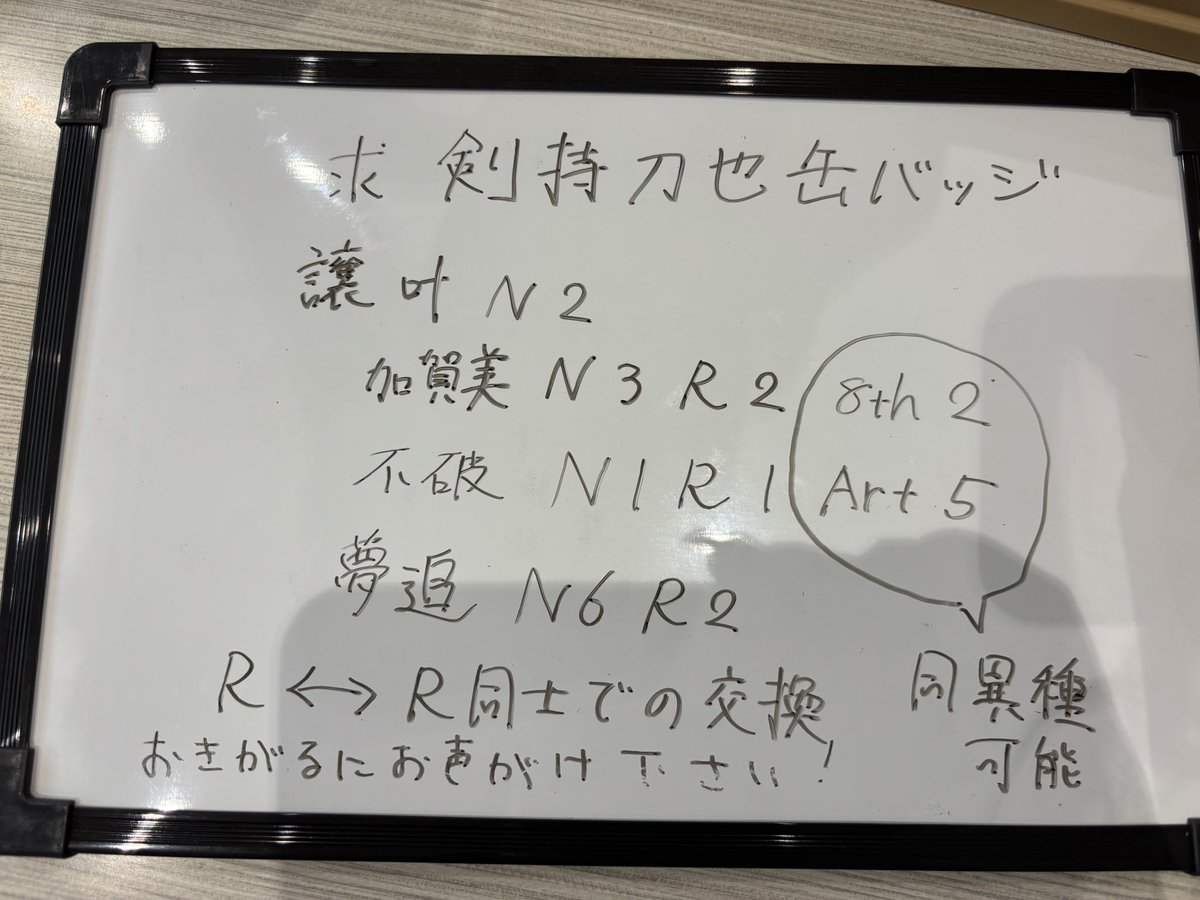 求 剣持刀也缶バッジ
譲 叶 N 2
加賀美 N 3 R 2 8th 2
不破 N 1 R 1 Art 5
夢追 N 6 R 2
R ↔ R同士での交換
同異種
可能
おきがるにお声がけ下さい!